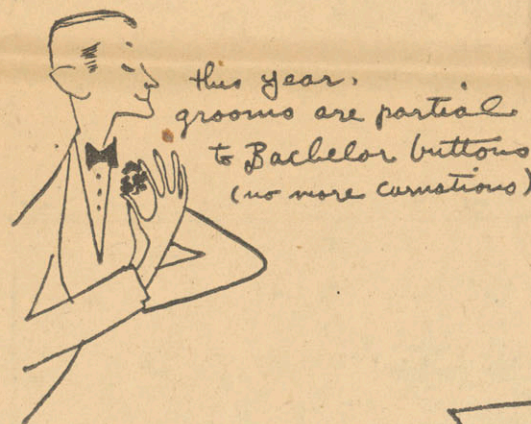 this year,
grooms are partial
to Bachelor buttons
(no more carnations)